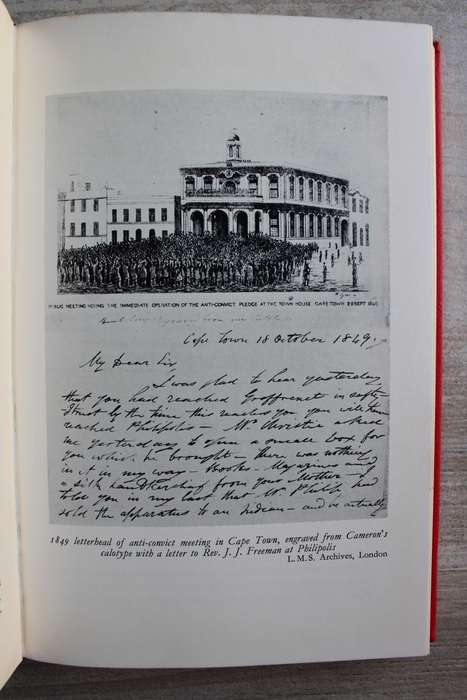 PUBLIC MEETING VOTING THE IMMEDIATE OPERATION OF THE ANTI-CONVICT PLEDGE AT THE TOWN HOUSE. CAPE TOWN
Cape Town 18 October 1849.
My Dear Sir
I was glad to hear yesterday
that you had reached Graffreinet in safety
I trust by the time this reaches you you will have
reached Philipolis - Mr Christie asked
me yesterday to open a small box for
you which he brought - there was nothing
in it in my way - Books - Magazines and
a silk handkerchief from your Mother - I
told you in my last that Mr Philip had
sold the apparatus to an Indian - and is actually
1849 letterhead of anti-convict meeting in Cape Town, engraved from Cameron's
calotype with a letter to Rev. J. J. Freeman at Philipolis
L.M.S. Archives, London